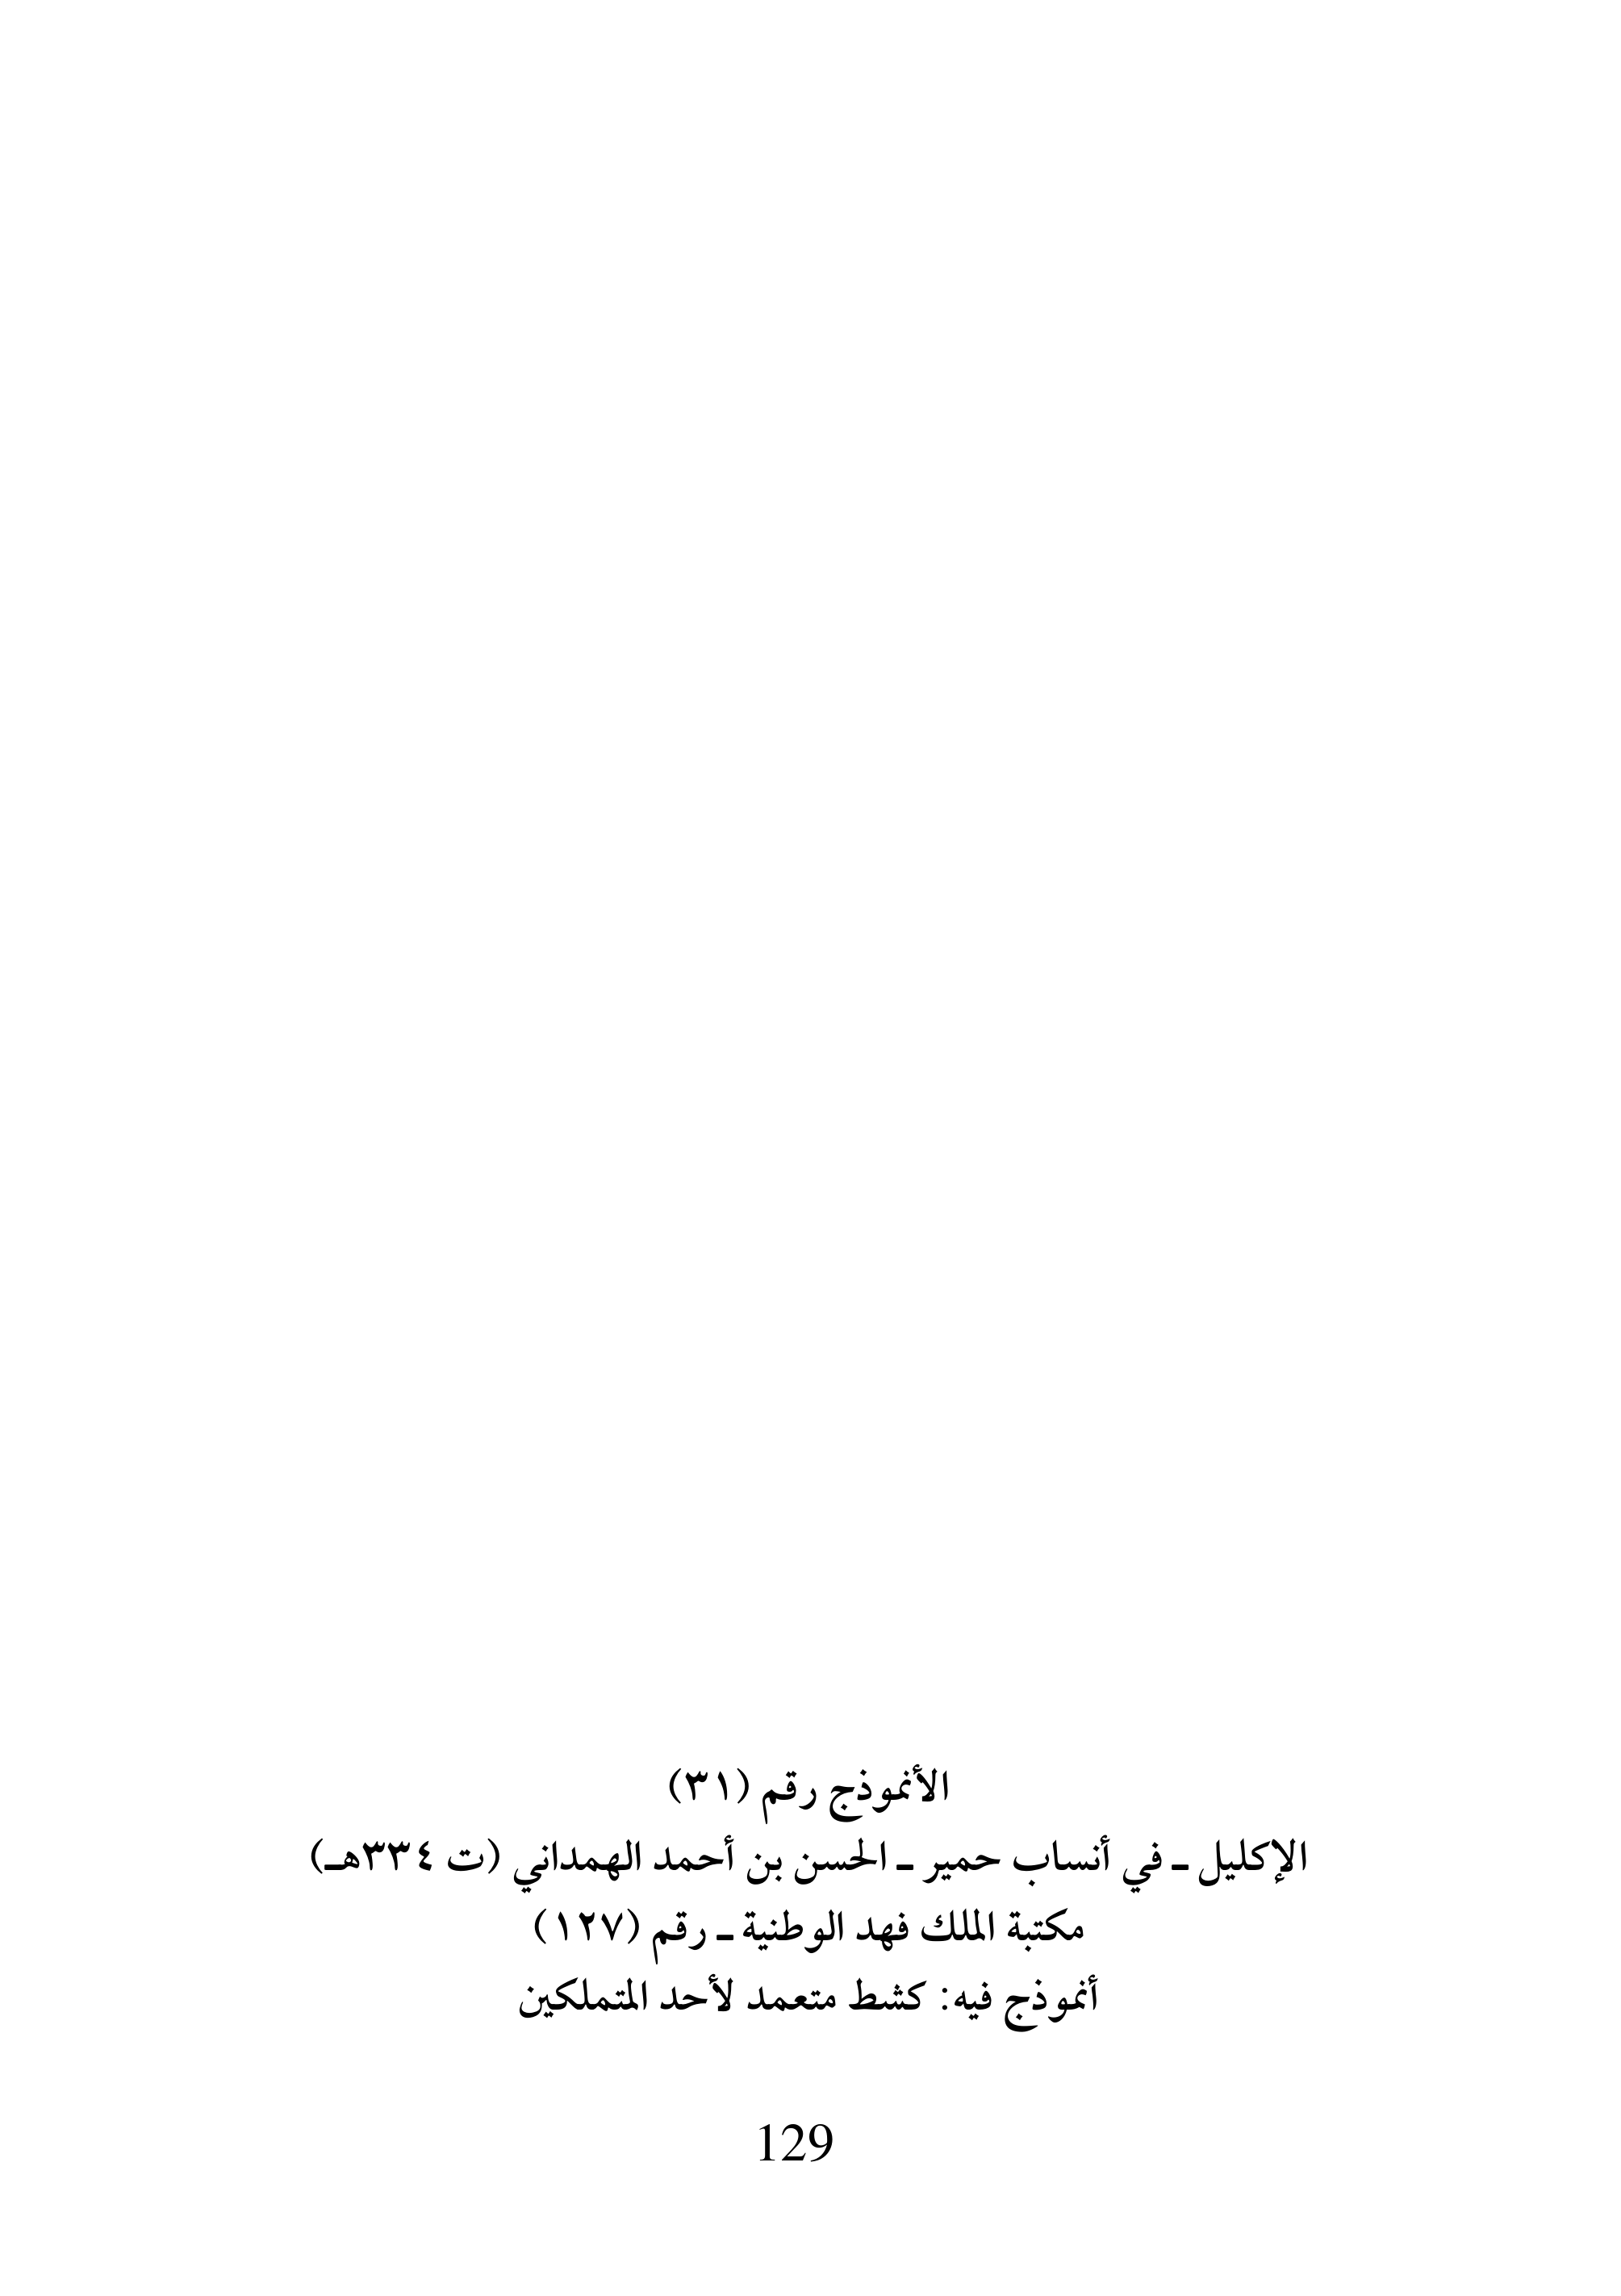 الأنموذج رقم (٣١)
الإكليل ـ في أنساب حمير ـ الحسن بن أحمد الهمداني (ت ٣٣٤هـ)
مكتبة الملك فهد الوطنية ـ رقم (١٢٧)
أنموذج فيه: كشط متعمد لأحد المتملكين
129